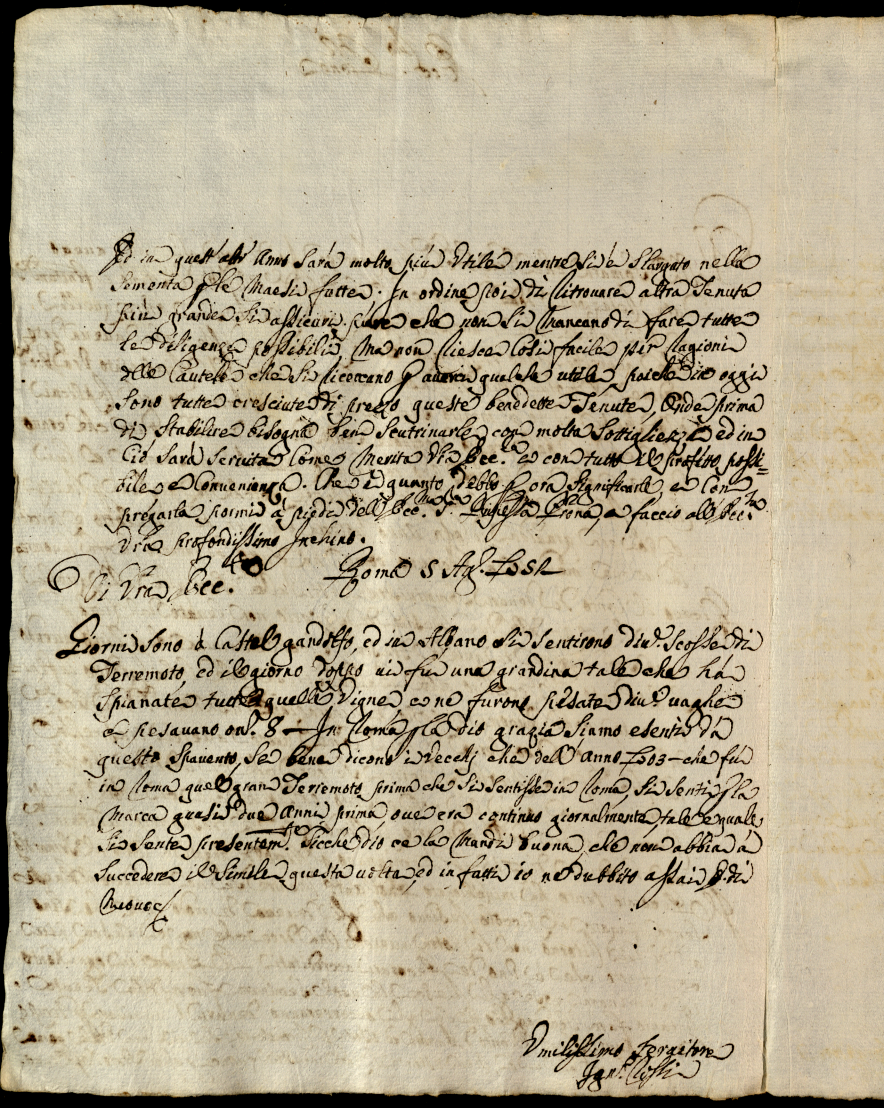 Ed in quest'altr'Anno sarà molto più Utile mentre si è slargato nella
sementa p le Maesi fatte; In ordine poi di ritrovare altra Tenuta
più grande si assicuri pure che non si mancano di fare tutte
le diligenze possibili, ma non riesce così facile per ragioni
delle Cautele che si ricercano p averci qualche utile, poiche in oggi
sono tutte cresciute di prezzo queste benedette Tenute, Onde prima
di stabilire bisogna ben scutrinarle con molta sottigliezza, ed in
ciò sarà servita come merita Vra Ecc.ª e con tutto il profitto possi=
bile, e Convenienza. Che è quanto debbo p ora significarle, e con
pregarla pormi à piedi dell'Ecc.ma Sig.ra Duchessa Prona, e faccio all'Ecc.za
Vra profondissimo Inchino.
Di Vra Ecc.za Roma 5 Ag.
Giorni sono à Castel gandolfo, ed in Albano si sentirono div.e Scosse di
Terremoto, ed il giorno doppo vi fu una grandina tale che hà
spianate tutte quelle Vigne, e ne furono pesate div.e vaghe
e pesavano on.e 8 — In Roma p la Dio grazia siamo esenti da
questo spavento, se bene dicono i Vecchi che dell'anno 1703 — che fù
in Roma quel gran Terremoto, prima che si sentisse in Roma, si sentì p la
Marca quasi due anni prima, ove era continuo giornalmente, tale e quale
si sente presentem.te Sicche Dio ce la mandi buona, che non abbia à
succedere il simile questa volta, ed in fatti io ne dubbito assai p di
nuovo
Umilissimo Servitore
Ign.o Rossi